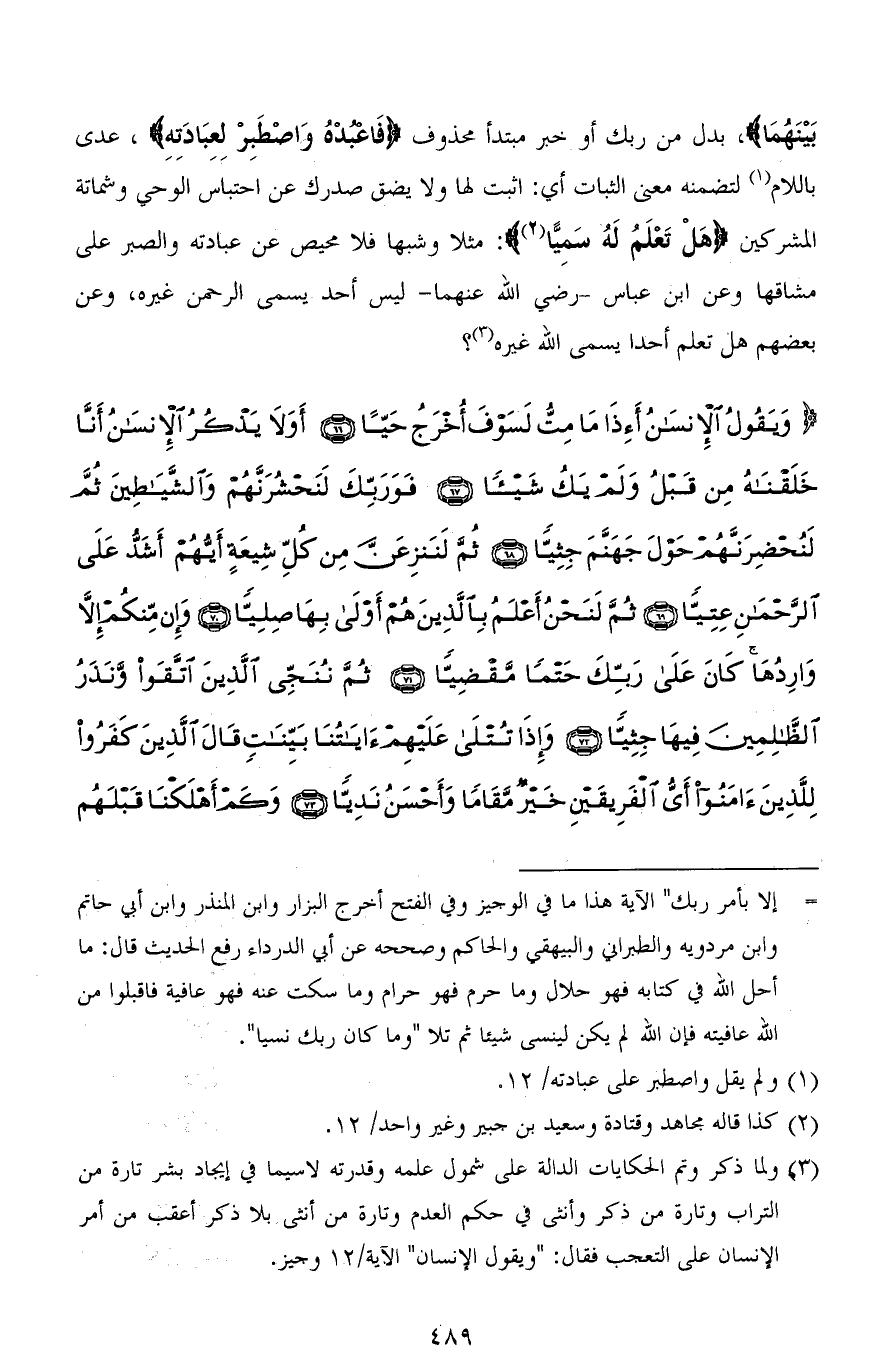 بَيْنَهُمَا﴾، بدل من ربك أو خبر مبتدأ محذوف ﴿فَاعْبُدْهُ وَاصْطَبِرْ لِعِبَادَتِهِ﴾ ، عدى
باللام(١) لتضمنه معنى الثبات أي: اثبت لها ولا يضق صدرك عن احتباس الوحي وشماتة
المشركين ﴿هَلْ تَعْلَمُ لَهُ سَمِيًّا(٢)﴾: مثلا وشبها فلا محيص عن عبادته والصبر على
مشاقها وعن ابن عباس -رضي الله عنهما- ليس أحد يسمى الرحمن غيره، وعن
بعضهم هل تعلم أحدا يسمى الله غيره(٣)؟
﴿ وَيَقُولُ ٱلْإِنسَٰنُ أَءِذَا مَا مِتُّ لَسَوْفَ أُخْرَجُ حَيًّا ٦٦ أَوَلَا يَذْكُرُ ٱلْإِنسَٰنُ أَنَّا
خَلَقْنَٰهُ مِن قَبْلُ وَلَمْ يَكُ شَيْـًٔا ٦٧ فَوَرَبِّكَ لَنَحْشُرَنَّهُمْ وَٱلشَّيَٰطِينَ ثُمَّ
لَنُحْضِرَنَّهُمْ حَوْلَ جَهَنَّمَ جِثِيًّا ٦٨ ثُمَّ لَنَنزِعَنَّ مِن كُلِّ شِيعَةٍ أَيُّهُمْ أَشَدُّ عَلَى
ٱلرَّحْمَٰنِ عِتِيًّا ٦٩ ثُمَّ لَنَحْنُ أَعْلَمُ بِٱلَّذِينَ هُمْ أَوْلَىٰ بِهَا صِلِيًّا ٧٠ وَإِن مِّنكُمْ إِلَّا
وَارِدُهَا ۚ كَانَ عَلَىٰ رَبِّكَ حَتْمًا مَّقْضِيًّا ٧١ ثُمَّ نُنَجِّى ٱلَّذِينَ ٱتَّقَوا۟ وَّنَذَرُ
ٱلظَّٰلِمِينَ فِيهَا جِثِيًّا ٧٢ وَإِذَا تُتْلَىٰ عَلَيْهِمْ ءَايَٰتُنَا بَيِّنَٰتٍ قَالَ ٱلَّذِينَ كَفَرُوا۟
لِلَّذِينَ ءَامَنُوٓا۟ أَىُّ ٱلْفَرِيقَيْنِ خَيْرٌ مَّقَامًا وَأَحْسَنُ نَدِيًّا ٧٣ وَكَمْ أَهْلَكْنَا قَبْلَهُم
= إلا بأمر ربك" الآية هذا ما في الوجيز وفي الفتح أخرج البزار وابن المنذر وابن أبي حاتم
وابن مردويه والطبراني والبيهقي والحاكم وصححه عن أبي الدرداء رفع الحديث قال: ما
أحل الله في كتابه فهو حلال وما حرم فهو حرام وما سكت عنه فهو عافية فاقبلوا من
الله عافيته فإن الله لم يكن لينسى شيئا ثم تلا "وما كان ربك نسيا".
(١) ولم يقل واصطبر على عبادته/ ١٢.
(٢) كذا قاله مجاهد وقتادة وسعيد بن جبير وغير واحد/ ١٢.
(٣) ولما ذكر وتم الحكايات الدالة على شمول علمه وقدرته لاسيما في إيجاد بشر تارة من
التراب وتارة من ذكر وأنثى في حكم العدم وتارة من أنثى بلا ذكر أعقب من أمر
الإنسان على التعجب فقال: "ويقول الإنسان" الآية/١٢ وجيز.
٤٨٩